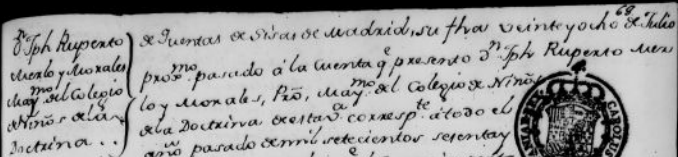 68
Dn Jph Ruperto
Merlo y Morales
Maymo del Colegio
de Niños de la
Doctrina . .
de Quentas de Sisas de Madrid, su fha veinte y ocho de Julio
proxmo pasado à la Cuenta q presento Dn Jph Ruperto Mer
lo y Morales, Pro, Maymo del Colegio de Niños
de la Doctrina de esta va correspte à todo el
año pasado de mil setecientos sesenta y
CAROLUS